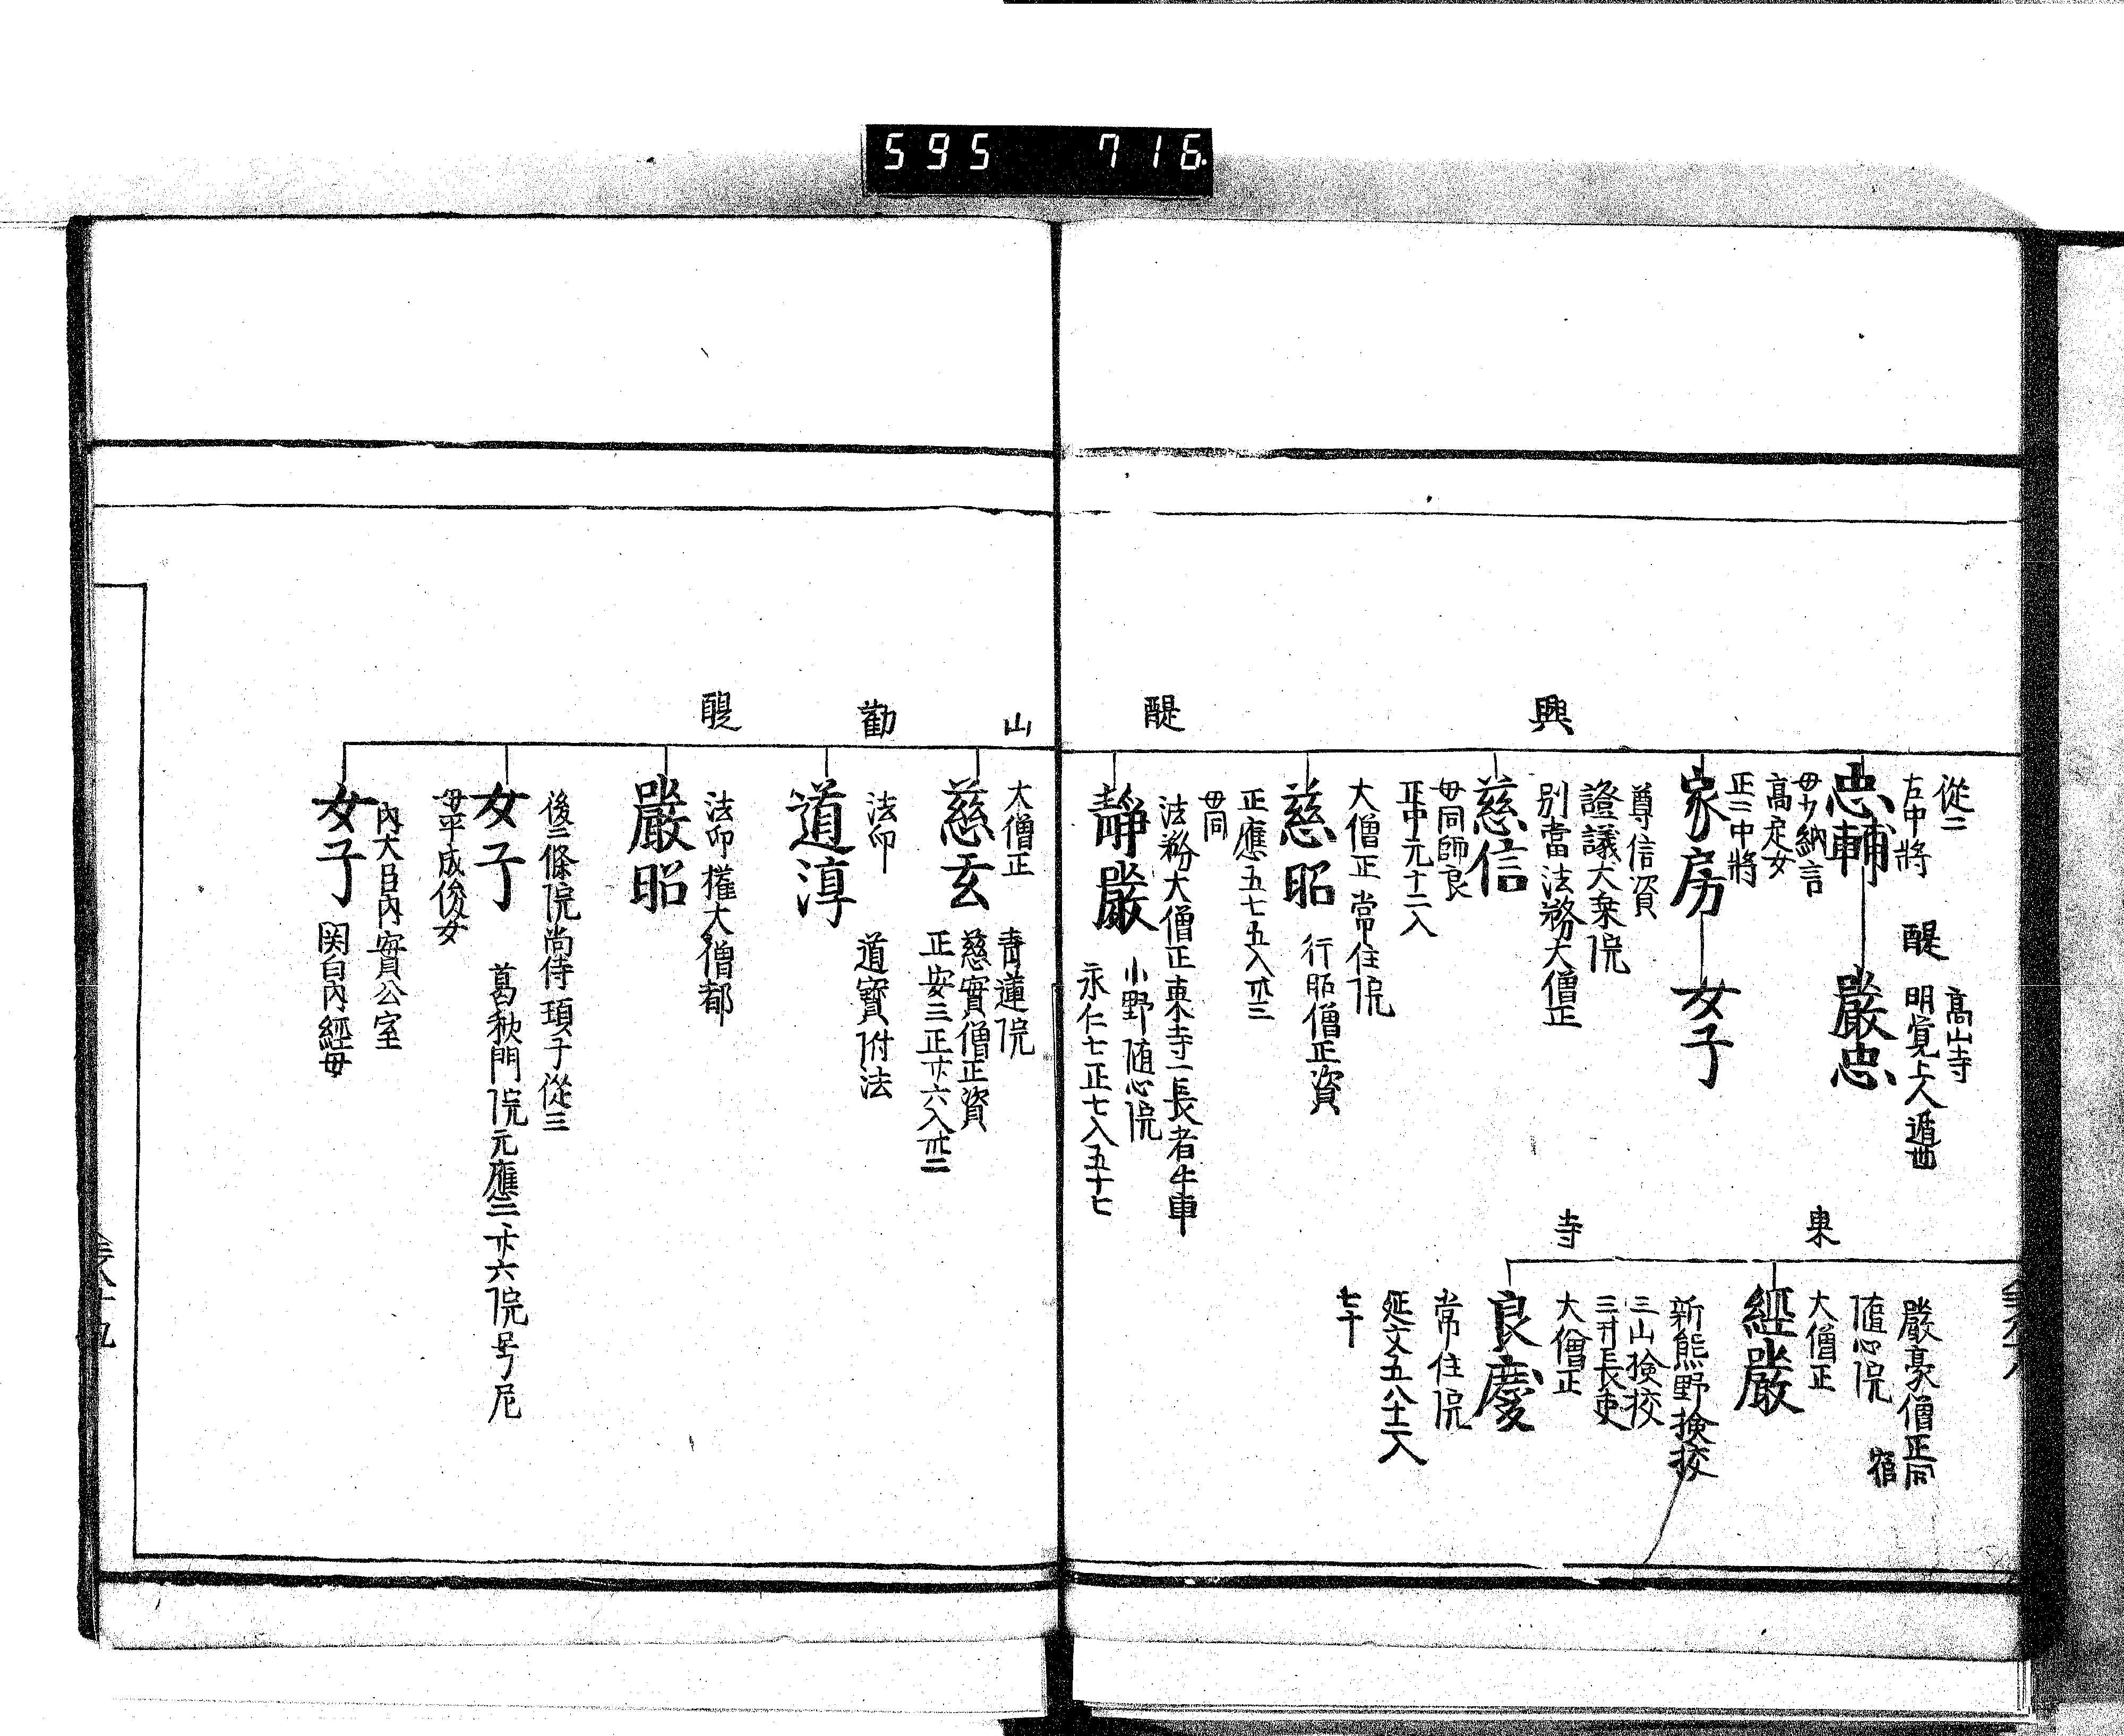 595 716
從二
左中將
忠輔
母少納言
高定女
醍
高山寺
明覚上人遁世
嚴忠
正二中將
家房
女子
興
尊信資
證議大乗院
別當法務大僧正
慈信
母同師良
大僧正 常住院
慈昭
行昭僧正資
正應五七五入
母同
醍
法務大僧正東寺一長者牛車
静嚴
小野随心院
永仁七正七入五十七
嚴豪僧正同
宿
随心院
東
大僧正
經嚴
新熊野檢校
三山檢校
寺
大僧正
良慶
常住院
延文五八十二入
七十
山
大僧正
慈玄
青蓮院
慈實僧正資
勸
法印
道淳
道寳付法
醍
法印權大僧都
嚴昭
後二條院尚侍 頊子從三
女子
母平成俊女
葛秋門院元應二廿六院号尼
內大臣內實公室
女子
関白內經母